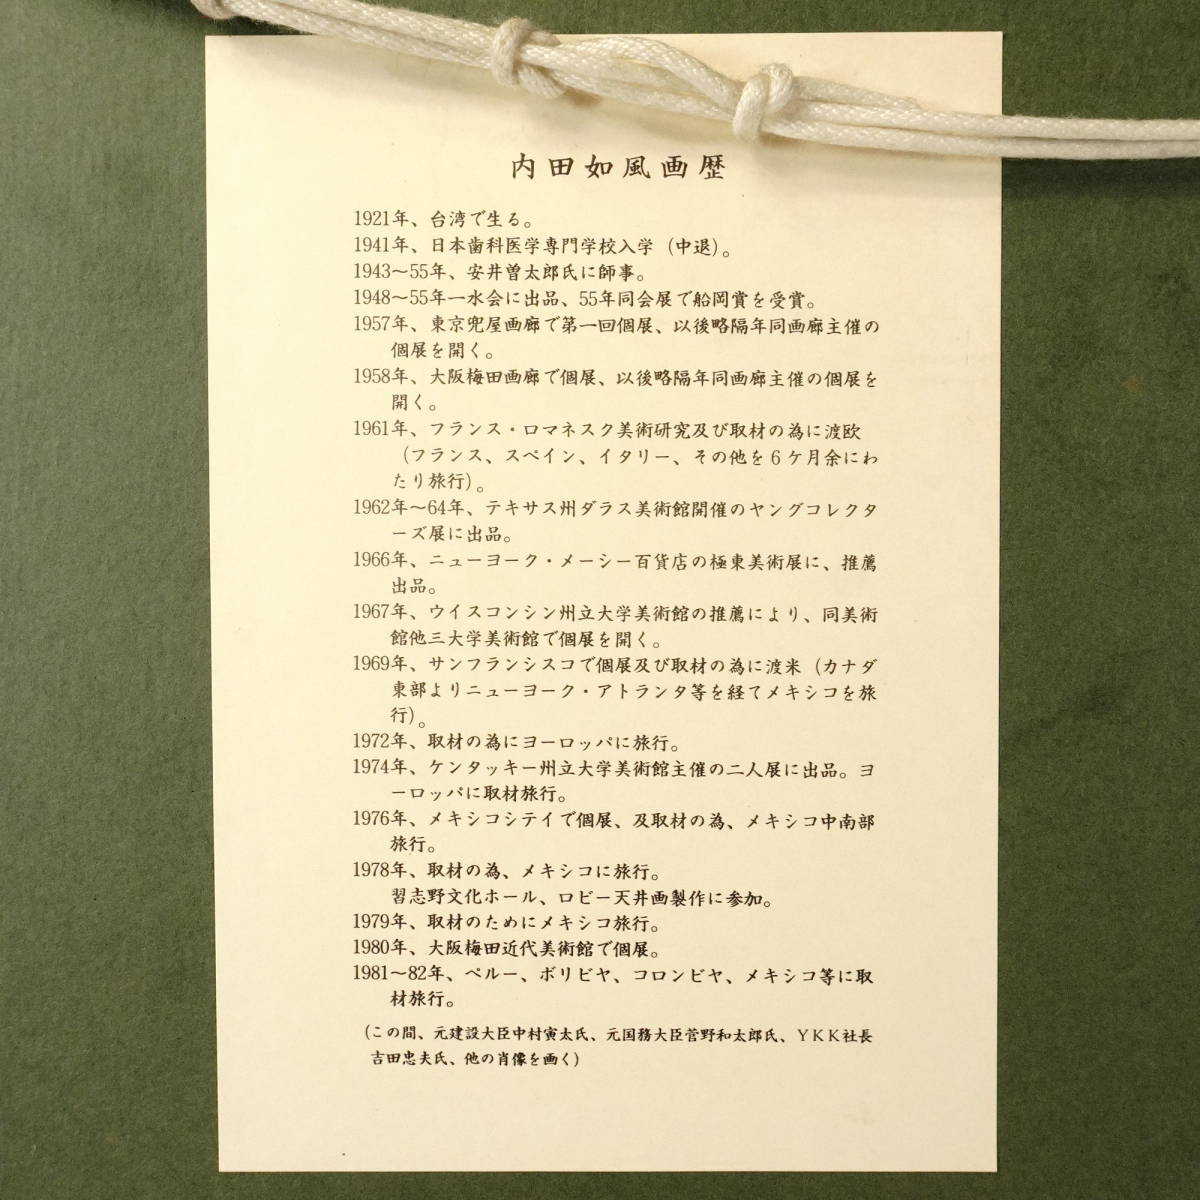 内田如風画歴
1921年、台湾で生る。
1941年、日本歯科医学専門学校入学（中退）。
1943～55年、安井曽太郎氏に師事。
1948～55年一水会に出品、55年同会展で船岡賞を受賞。
1957年、東京兜屋画廊で第一回個展、以後略隔年同画廊主催の
個展を開く。
1958年、大阪梅田画廊で個展、以後略隔年同画廊主催の個展を
開く。
1961年、フランス・ロマネスク美術研究及び取材の為に渡欧
（フランス、スペイン、イタリー、その他を6ケ月余にわ
たり旅行）。
1962年～64年、テキサス州ダラス美術館開催のヤングコレクタ
ーズ展に出品。
1966年、ニューヨーク・メーシー百貨店の極東美術展に、推薦
出品。
1967年、ウイスコンシン州立大学美術館の推薦により、同美術
館他三大学美術館で個展を開く。
1969年、サンフランシスコで個展及び取材の為に渡米（カナダ
東部よりニューヨーク・アトランタ等を経てメキシコを旅
行）。
1972年、取材の為にヨーロッパに旅行。
1974年、ケンタッキー州立大学美術館主催の二人展に出品。ヨ
ーロッパに取材旅行。
1976年、メキシコシテイで個展、及取材の為、メキシコ中南部
旅行。
1978年、取材の為、メキシコに旅行。
習志野文化ホール、ロビー天井画製作に参加。
1979年、取材のためにメキシコ旅行。
1980年、大阪梅田近代美術館で個展。
1981～82年、ペルー、ボリビヤ、コロンビヤ、メキシコ等に取
材旅行。
（この間、元建設大臣中村寅太氏、元国務大臣菅野和太郎氏、ＹＫＫ社長
吉田忠夫氏、他の肖像を画く）